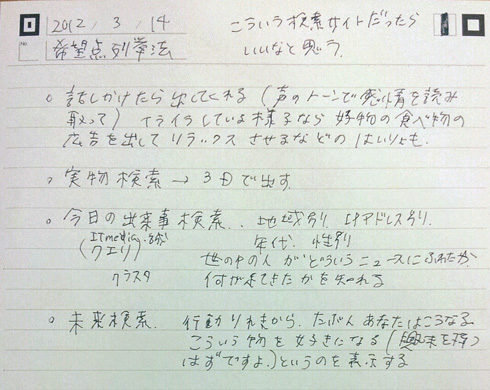 2012 / 3 / 14
希望点列挙法
こういう検索サイトだったら
いいなと思う.
No
。話しかけたら出してくれる (声のトーンで感情を読み
取って) イライラしている様子なら 好物の食べ物の
広告を出して リラックス させるなどの はいりょも.
。実物検索 → 3Dで出す
。今日の出来事検索.. 地域別り. IPアドレス別り.
ITmedia
(クエリ) 年代. 性別り
世の中の人 がどういうニュースにふれたか.
クラスタ 何が起きてきたかを知れる
。未来検索. 行動りれきから. たぶん あなたはこうなる.
こういう物を 好きになる (興味を持つ
はずですよ.) というのを 表示する